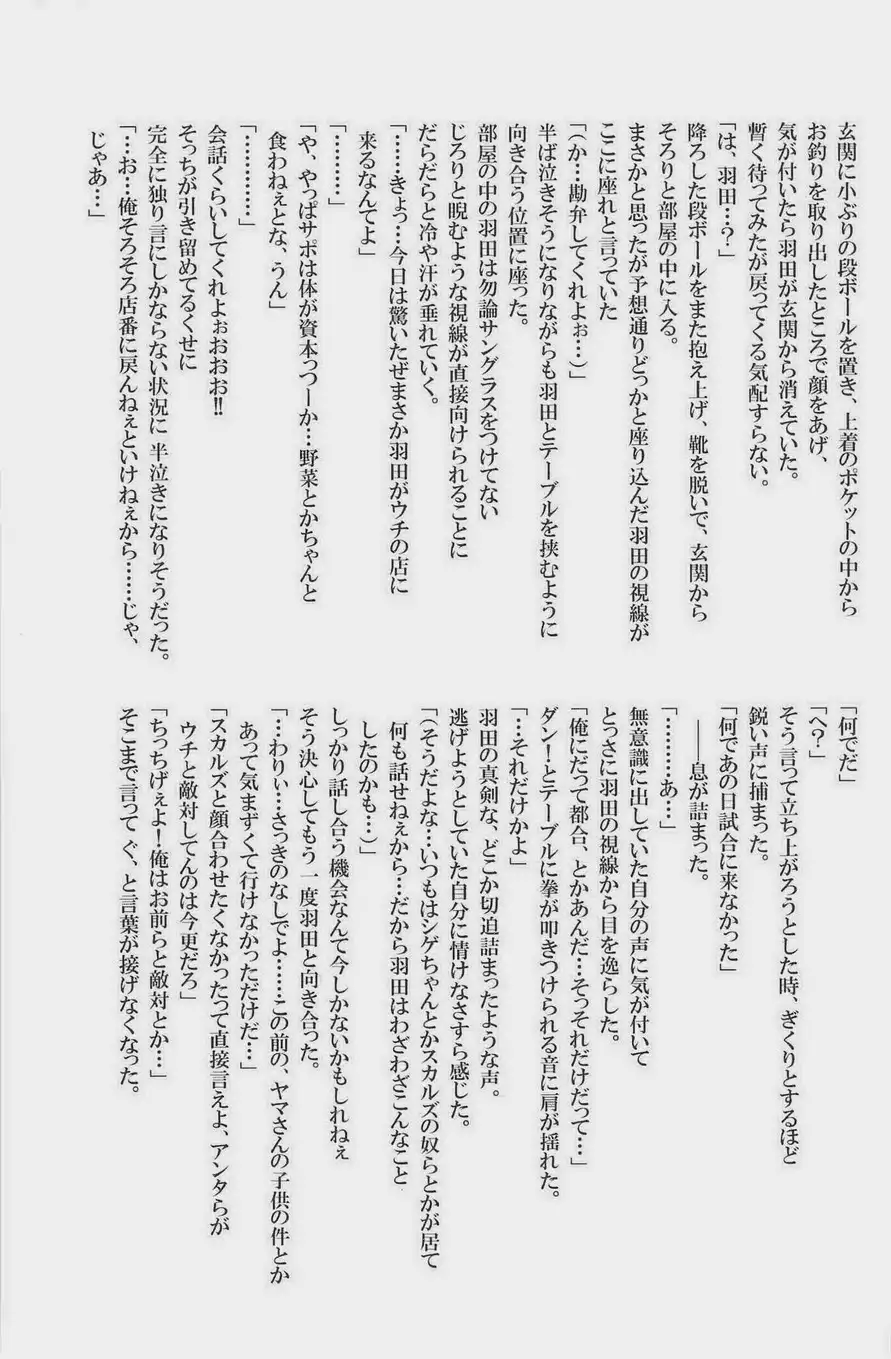 玄関に小ぶりの段ボールを置き、上着のポケットの中から
お釣りを取り出したところで顔をあげ、
気が付いたら羽田が玄関から消えていた。
暫く待ってみたが戻ってくる気配すらない。
「は、羽田…？」
降ろした段ボールをまた抱え上げ、靴を脱いで、玄関から
そろりと部屋の中に入る。
まさかと思ったが予想通りどっかと座り込んだ羽田の視線が
ここに座れと言っていた
「（か…勘弁してくれよぉ…）」
半ば泣きそうになりながらも羽田とテーブルを挟むように
向き合う位置に座った。
部屋の中の羽田は勿論サングラスをつけてない
じろりと睨むような視線が直接向けられることに
だらだらと冷や汗が垂れていく。
「……きょっ…今日は驚いたぜまさか羽田がウチの店に
来るなんてよ」
「…………」
「や、やっぱサポは体が資本っつーか…野菜とかちゃんと
食わねぇとな、うん」
「…………」
会話くらいしてくれよぉおおお‼
そっちが引き留めてるくせに
完全に独り言にしかならない状況に 半泣きになりそうだった。
「…お…俺そろそろ店番に戻んねぇといけねぇから……じゃ、
じゃあ…」
「何でだ」
「へ？」
そう言って立ち上がろうとした時、ぎくりとするほど
鋭い声に捕まった。
「何であの日試合に来なかった」
――息が詰まった。
「…………あ…」
無意識に出していた自分の声に気が付いて
とっさに羽田の視線から目を逸らした。
「俺にだって都合、とかあんだ…そっそれだけだって…」
ダン！とテーブルに拳が叩きつけられる音に肩が揺れた。
「…それだけかよ」
羽田の真剣な、どこか切迫詰まったような声。
逃げようとしていた自分に情けなさすら感じた。
「（そうだよな…いつもはシゲちゃんとかスカルズの奴らとかが居て
何も話せねぇから…だから羽田はわざわざこんなこと
したのかも…）」
しっかり話し合う機会なんて今しかないかもしれねぇ
そう決心してもう一度羽田と向き合った。
「…わりぃ…さっきのなしでよ……この前の、ヤマさんの子供の件とか
あって気まずくて行けなかっただけだ…」
「スカルズと顔合わせたくなかったって直接言えよ、アンタらが
ウチと敵対してんのは今更だろ」
「ちっちげぇよ！俺はお前らと敵対とか…」
そこまで言って ぐ、と言葉が接げなくなった。